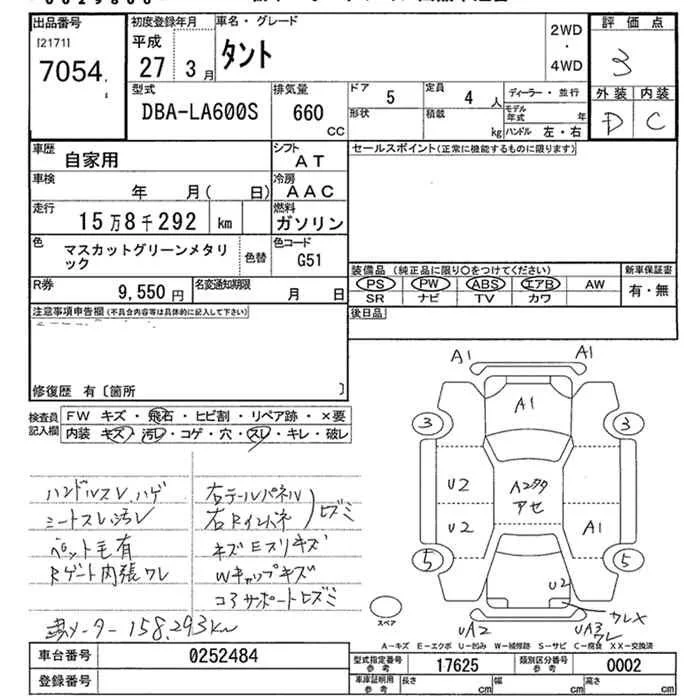 出品番号
[2171]
7054
初度登録年月
平成
27 3月
車名・グレード
タント
2WD
・
4WD
評価点
3
外装 内装
D C
型式
DBA-LA600S
排気量
660
CC
ドア
5
定員
4 人
形状
積載
kg
ディーラー・並行
モデル年式
年
ハンドル 左・右
車歴
自家用
シフト
AT
セールスポイント(正常に機能するものに限ります)
車検
年 月( 日)
冷房
AAC
走行
15万8千292 km
燃料
ガソリン
色
マスカットグリーンメタリック
色替
色コード
G51
R券
9,550 円
名変通知期限
月 日
装備品 (純正品に限り○をつけてください)
PS PW ABS エアB AW
SR ナビ TV カワ
新車保証書
有・無
後日品
注意事項申告欄(不具合内容等は具体的に記入して下さい)
修復歴 有〔箇所 〕
検査員記入欄
FW キズ・飛石・ヒビ割・リペア跡・×要
内装 キズ・汚レ・コゲ・穴・スレ・キレ・破レ
ハンドルスレ、ハゲ
シートスレ汚レ
ペット毛有
Rゲート内張ワレ
右テールパネル
右Rインパネ
ヒズミ
キズEスリキズ
Wキャップキズ
コアサポートヒズミ
メーター 158,293km
A1 A1
A1
3 3
U2
A2タタ
アセ
U2
A1
5 5
U2
ワレX
UA2
UA3
ワレ
スペア
A-キズ E-エクボ U-凹み W-補修跡 S-サビ C-腐食 XX-交換済
車台番号
0252484
登録番号
型式指定番号
参考
17625
類別区分番号
参考
0002
車庫証明用
参考
長さ cm
幅 cm
高さ cm